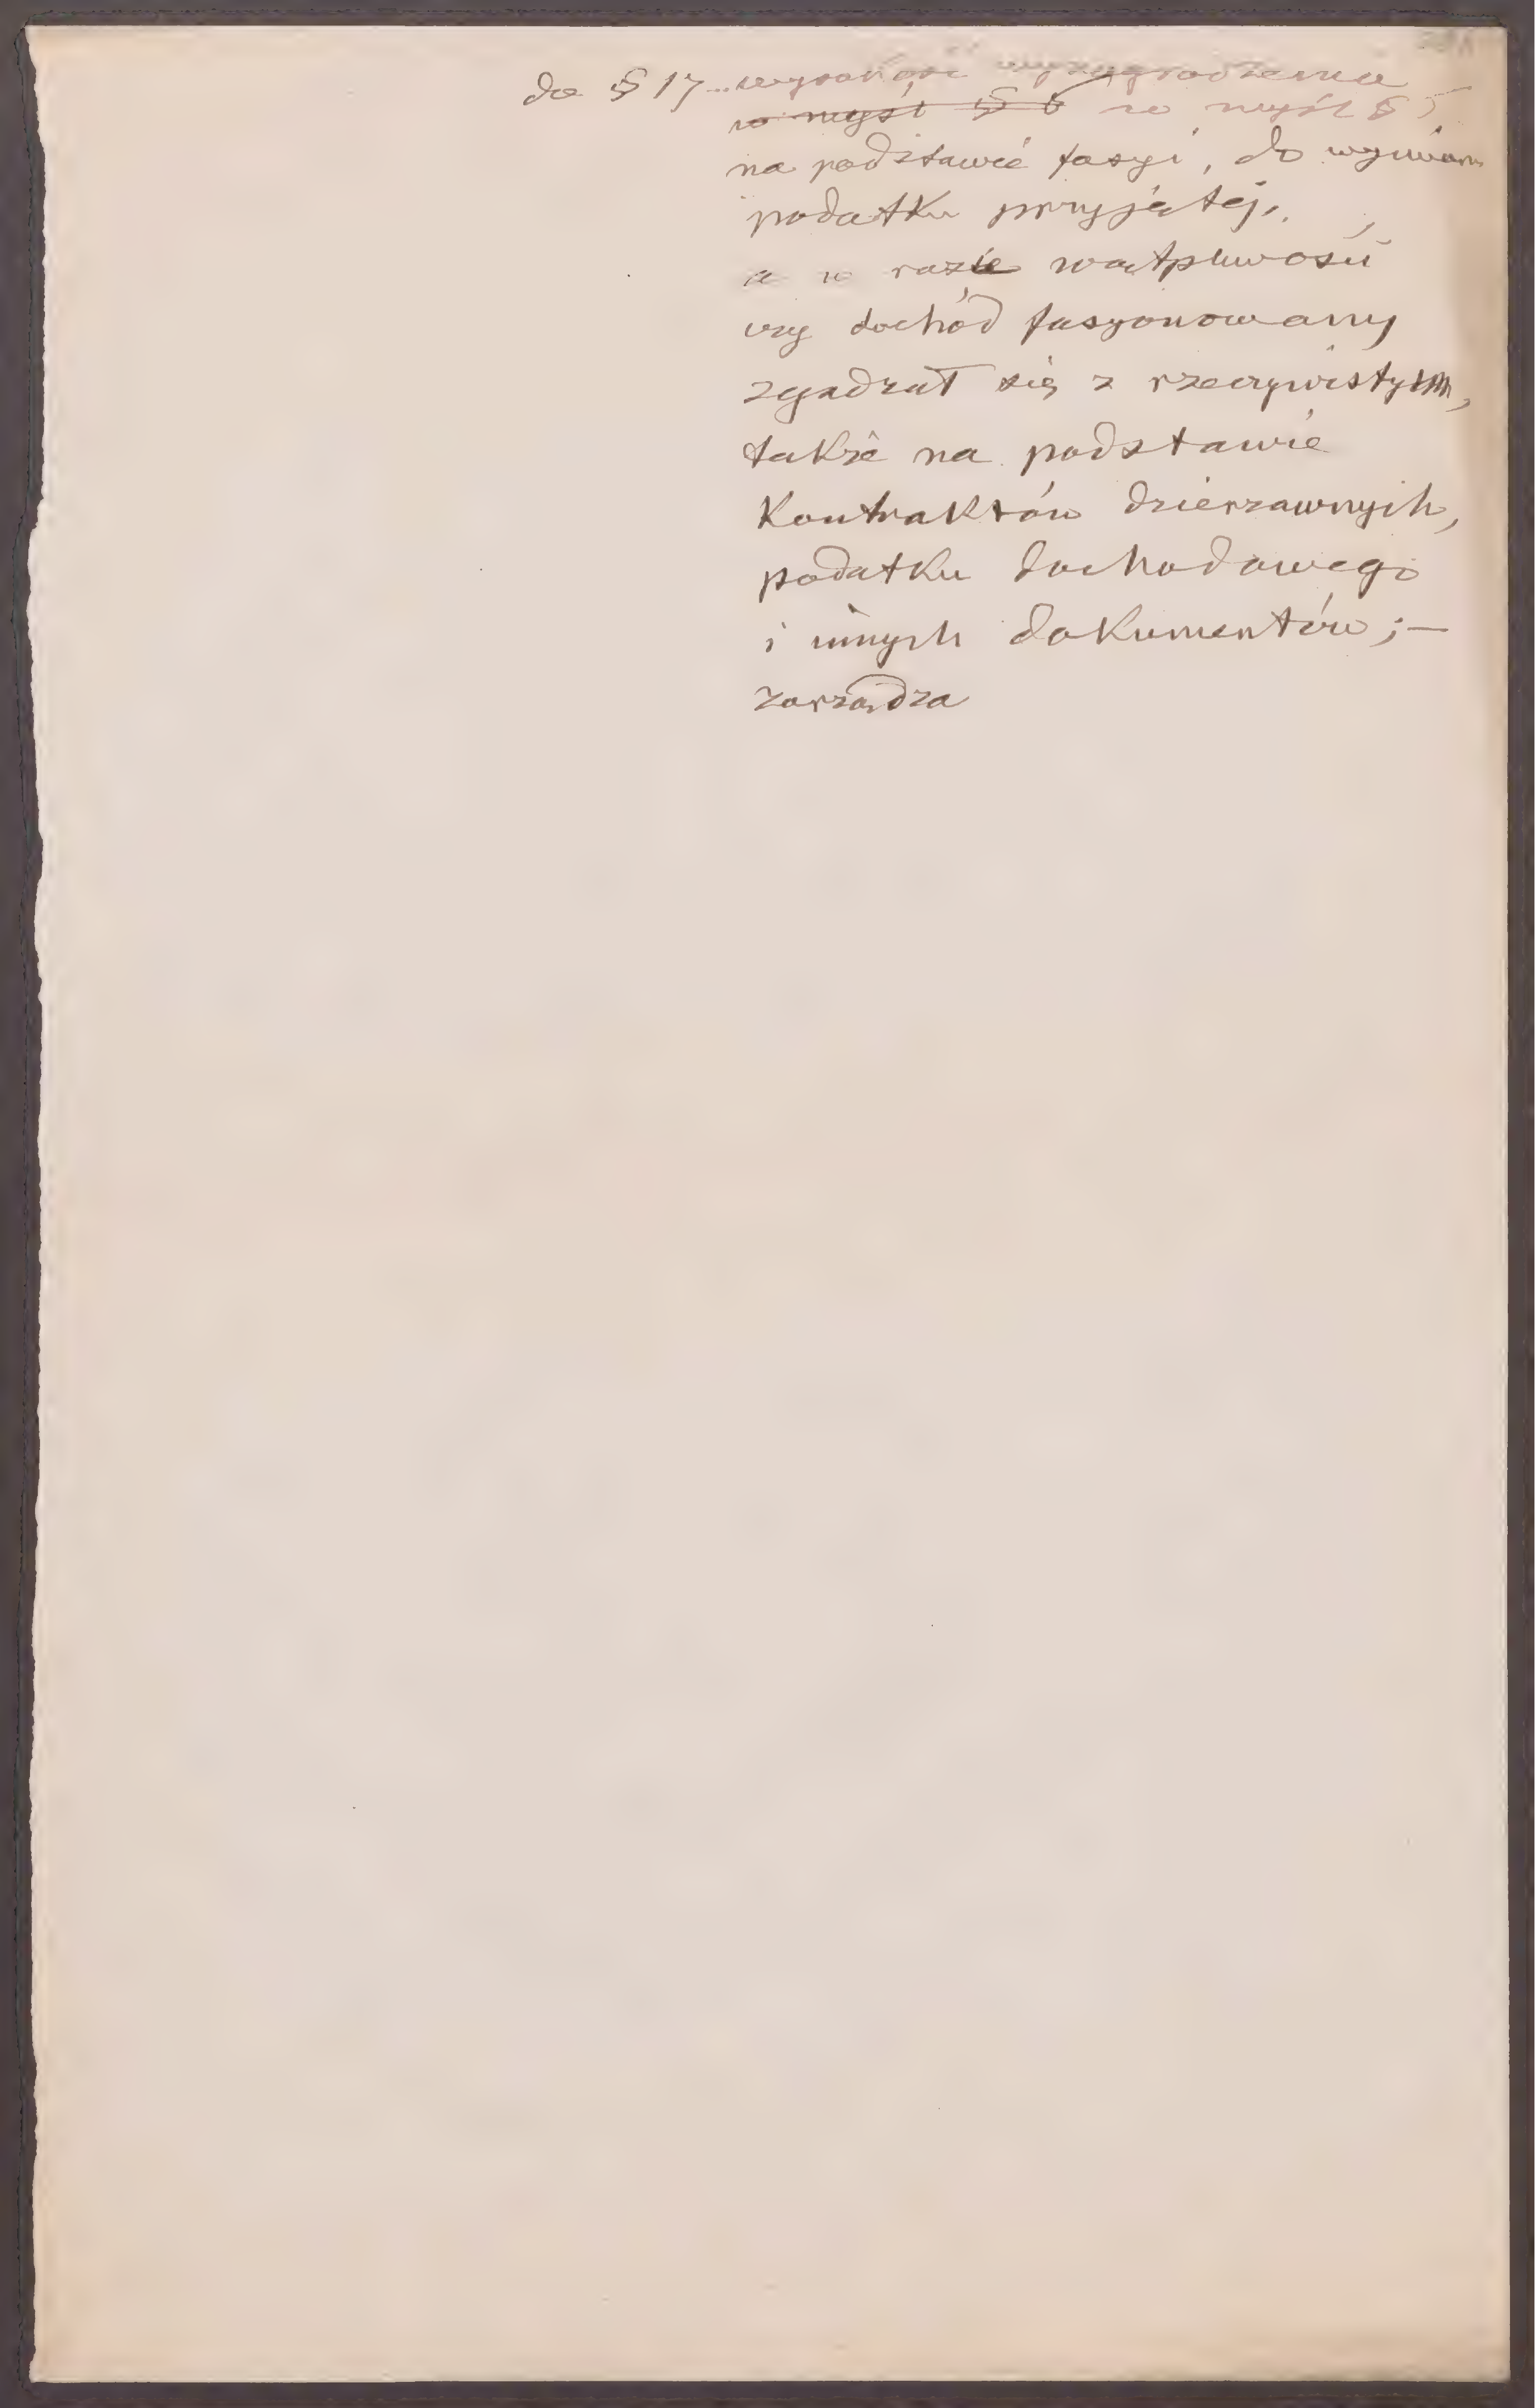 do § 17... wysokość wynagrodzenia
w myśl § 6 w myśl § 5
na podstawie fasyi, do wymiaru
podatku przyjętej,
a w razie wątpliwości
czy dochód fasyonowany
zgadzał się z rzeczywistym,
także na podstawie
kontraktów dzierzawnych,
podatku dochodowego
i innych dokumentów;—
zarządza